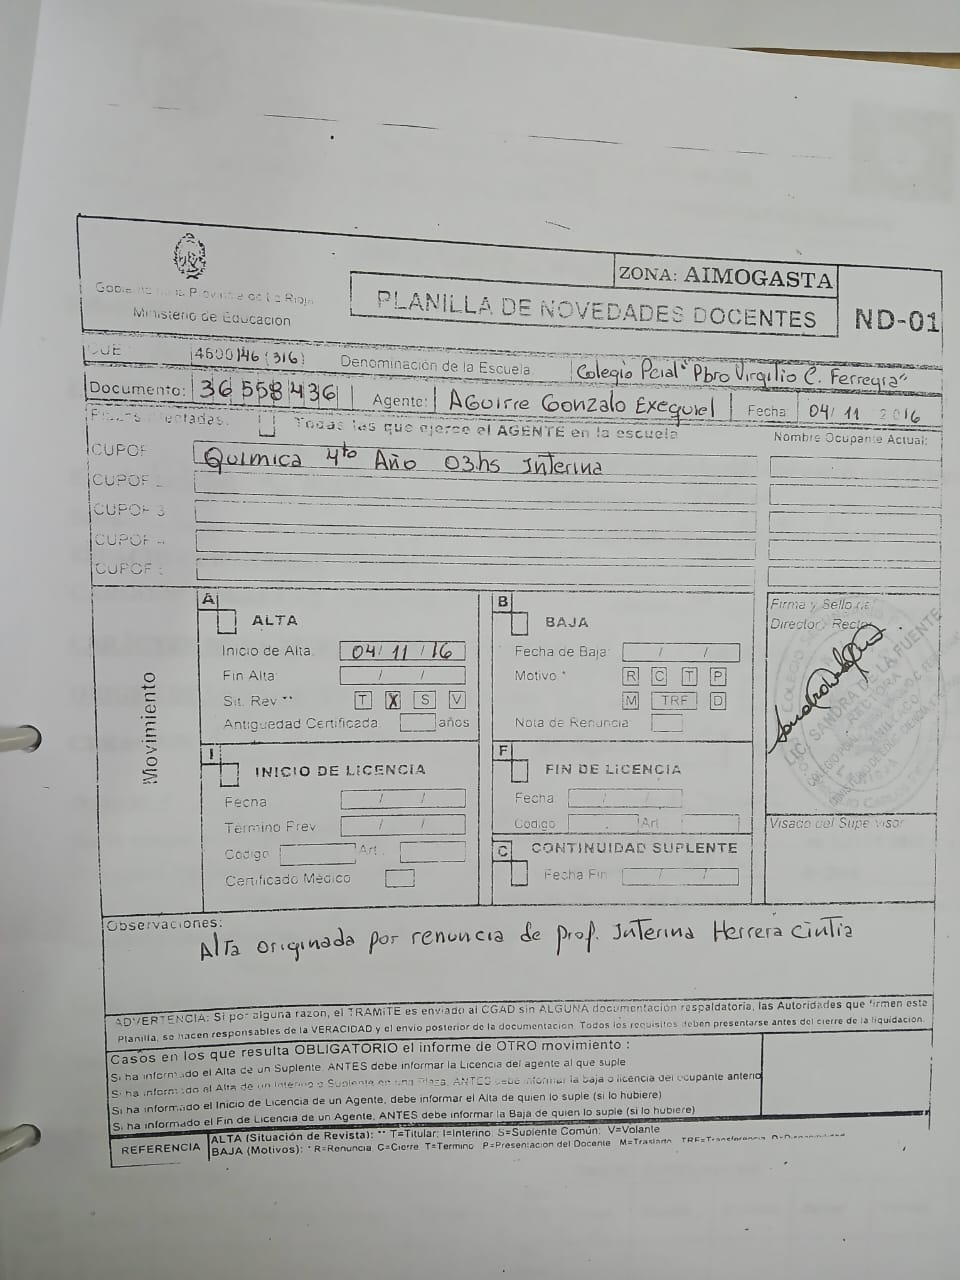 ZONA: AIMOGASTA
Gobierno de la Provincia de La Rioja
Ministerio de Educación
PLANILLA DE NOVEDADES DOCENTES
ND-01
CUE 4600146 (316) Denominación de la Escuela: Colegio Pcial "Pbro Virgilio C. Ferreyra"
Documento: 36558436 Agente: Aguirre Gonzalo Exequiel Fecha 04/ 11 2016
Plazas afectadas: Todas las que ejerce el AGENTE en la escuela Nombre Ocupante Actual:
CUPOF Quimica 4to Año 03hs Interina
CUPOF
CUPOF 3
CUPOF 4
CUPOF
Movimiento
A ALTA
Inicio de Alta: 04/ 11 /16
Fin Alta: / /
Sit. Rev ** T X S V
Antiguedad Certificada: años
B BAJA
Fecha de Baja: / /
Motivo * R C T P
M TRF D
Nota de Renuncia
Firma y Sello de
Director / Rector
LIC. SANDRA DE LA FUENTE
RECTORA
I INICIO DE LICENCIA
Fecha / /
Término Prev / /
Codigo Art.
Certificado Médico
F FIN DE LICENCIA
Fecha: / /
Codigo Art.
C CONTINUIDAD SUPLENTE
Fecha Fin: / /
Visado del Supervisor
Observaciones:
Alta originada por renuncia de prof. Interina Herrera Cintia
ADVERTENCIA: Si por alguna razon, el TRAMITE es enviado al CGAD sin ALGUNA documentación respaldatoria, las Autoridades que firmen este
Planilla, se hacen responsables de la VERACIDAD y el envio posterior de la documentacion. Todos los requisitos deben presentarse antes del cierre de la liquidación.
Casos en los que resulta OBLIGATORIO el informe de OTRO movimiento :
Si ha informado el Alta de un Suplente, ANTES debe informar la Licencia del agente al que suple
Si ha informado el Alta de un Interino o Suplente en una Plaza, ANTES debe informar la baja o licencia del ocupante anterio
Si ha informado el Inicio de Licencia de un Agente, debe informar el Alta de quien lo suple (si lo hubiere)
Si ha informado el Fin de Licencia de un Agente, ANTES debe informar la Baja de quien lo suple (si lo hubiere)
REFERENCIA ALTA (Situación de Revista): ** T=Titular; I=Interino; S=Suplente Común; V=Volante
BAJA (Motivos): * R=Renuncia C=Cierre T=Termino P=Presentacion del Docente M=Traslado TRF=Transferencia